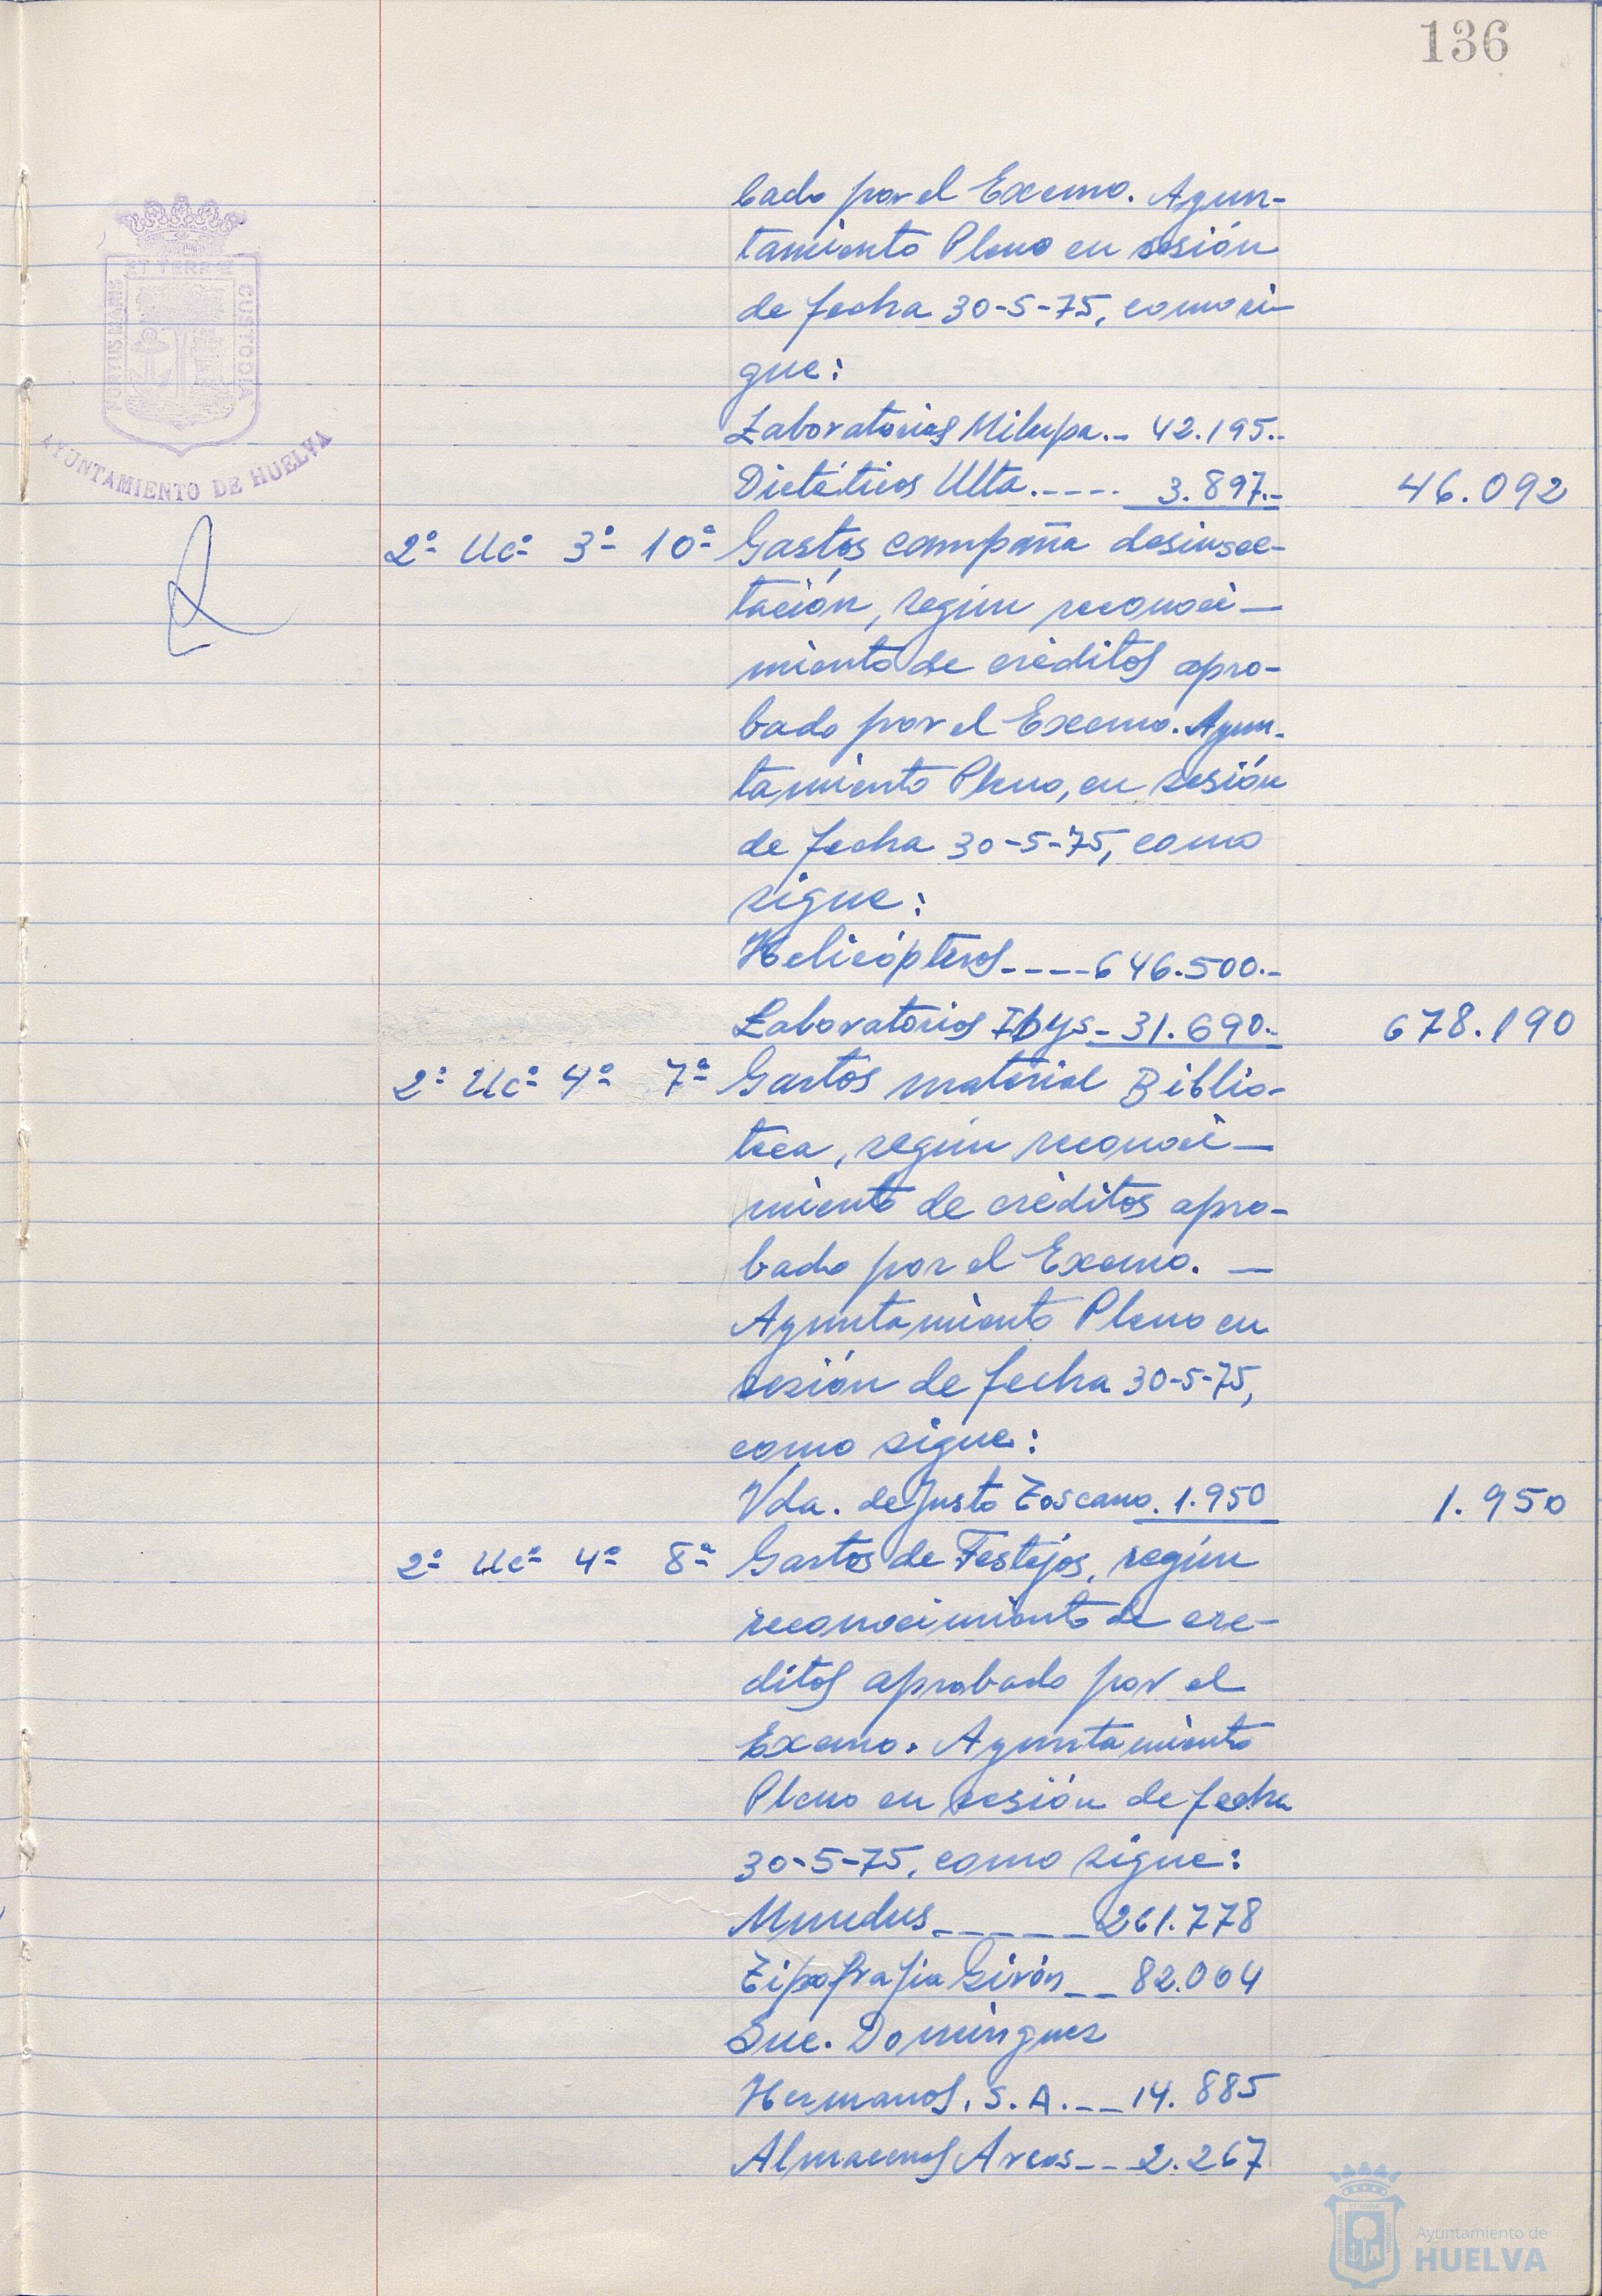 136
PORTUS MARIS
ET TERRAE
CUSTODIA
AYUNTAMIENTO DE HUELVA
bado por el Excmo. Ayun-
tamiento Pleno en sesión
de fecha 30-5-75, como si-
gue:
Laboratorios Milupa.- 42.195.-
Dietéticos Ulta.---- 3.897.- 46.092
2º Uc- 3º 10ª Gastos campaña desinsec-
tación, según reconoci-
miento de créditos apro-
bado por el Excmo. Ayun-
tamiento Pleno, en sesión
de fecha 30-5-75, como
sigue:
Helicópteros----646.500.-
Laboratorios Ibys-31.690.- 678.190
2º Uc- 4º 7ª Gastos material Biblio-
teca, según reconoci-
miento de créditos apro-
bado por el Excmo. -
Ayuntamiento Pleno en
sesión de fecha 30-5-75,
como sigue:
Vda. de Justo Toscano. 1.950 1.950
2º Uc- 4º 8ª Gastos de Festejos, según
reconocimiento de cré-
ditos aprobado por el
Excmo. Ayuntamiento
Pleno en sesión de fecha
30-5-75, como sigue:
Mundus-----261.778
Tipografia Girón--82.004
Suc. Domínguez
Hermanos, S.A.--14.885
Almacenes Arcos--2.267
Ayuntamiento de
HUELVA